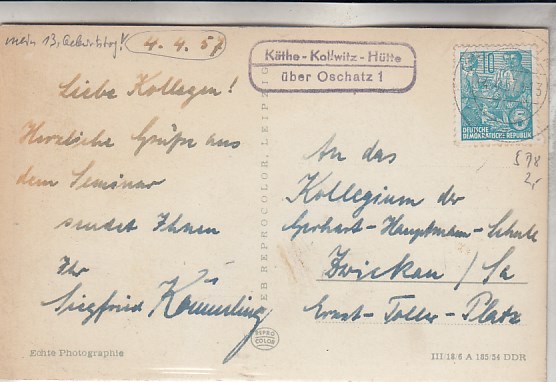 mein 13. Geburtstag! 4.4.57
Käthe-Kollwitz-Hütte
über Oschatz 1
10
5
DEUTSCHE
DEMOKRATISCHE REPUBLIK
Liebe Kollegen!
Herzliche Grüße aus
dem Seminar
sendet Ihnen
Ihr
Siegfried Kömmerling
VEB REPROCOLOR, LEIPZIG
REPRO
COLOR
578
2,-
An das
Kollegium der
Gerhart-Hauptmann-Schule
Zwickau / Sa
Ernst-Toller-Platz
Echte Photographie
III/18/6 A 185/54 DDR